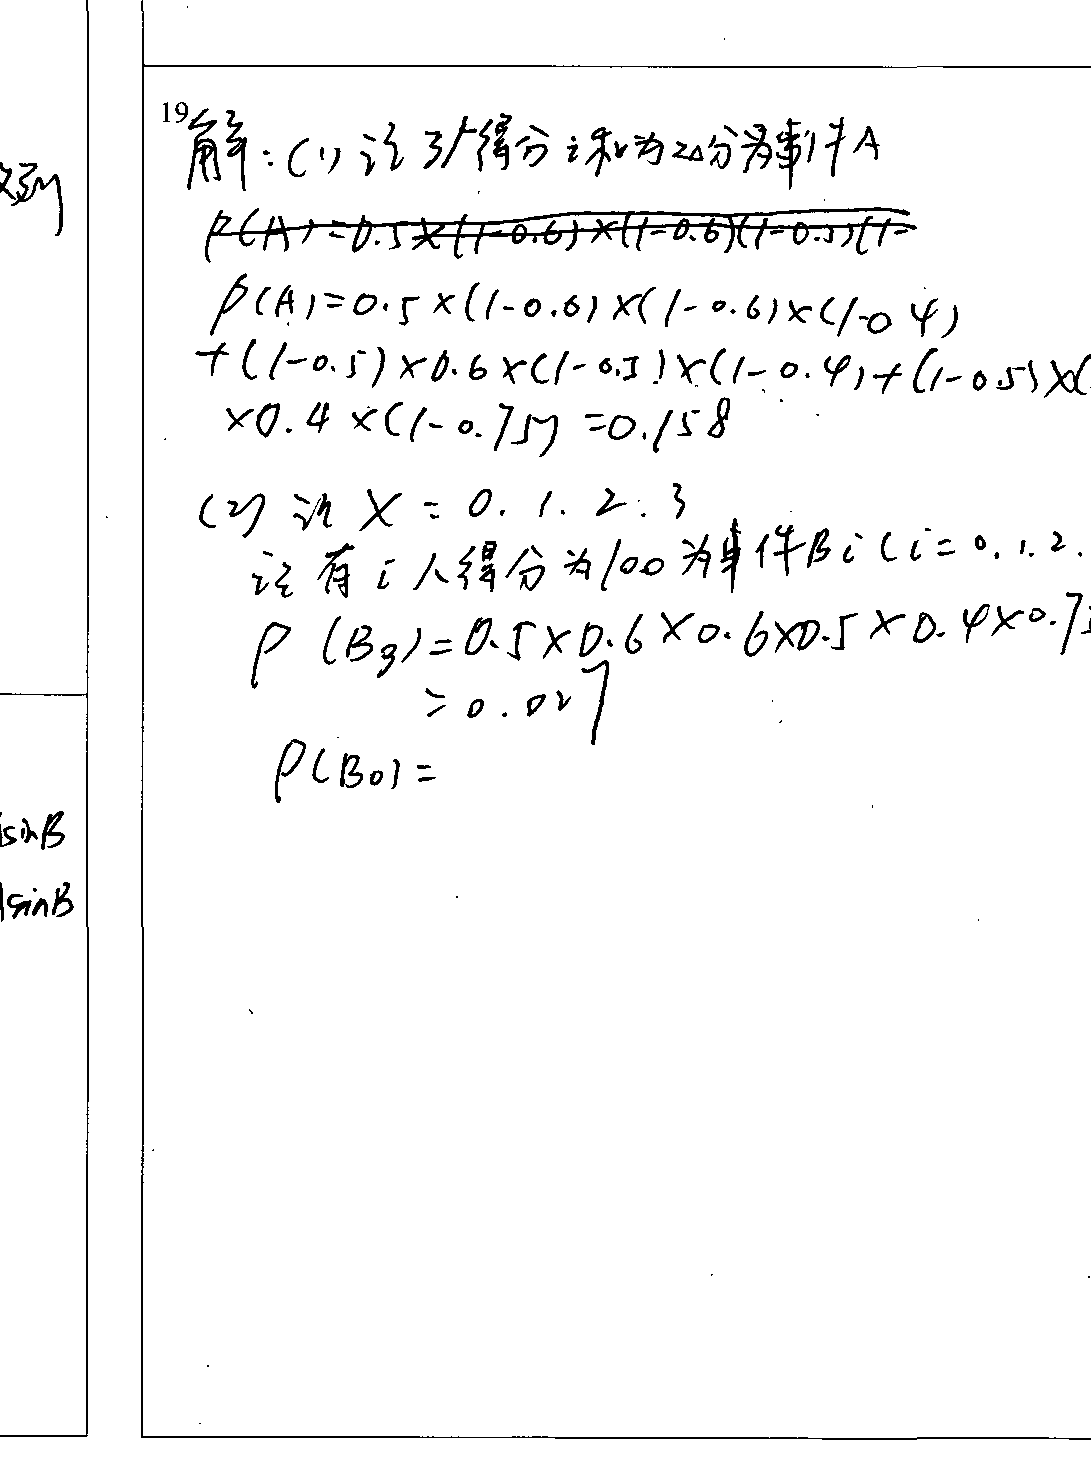 文列
sinB
sinB
19
解:(1)设3人得分之和为20分为事件A
P(A)=0.5×(1-0.6)×(1-0.6)(1-0.5)(1-
P(A)=0.5×(1-0.6)×(1-0.6)×(1-0.4)
+(1-0.5)×0.6×(1-0.5)×(1-0.4)+(1-0.5)×(
×0.4×(1-0.75)=0.158
(2)设X=0.1.2.3
设有i人得分为100为事件Bi(i=0.1.2.
P(B3)=0.5×0.6×0.6×0.5×0.4×0.75
=0.027
P(B0)=